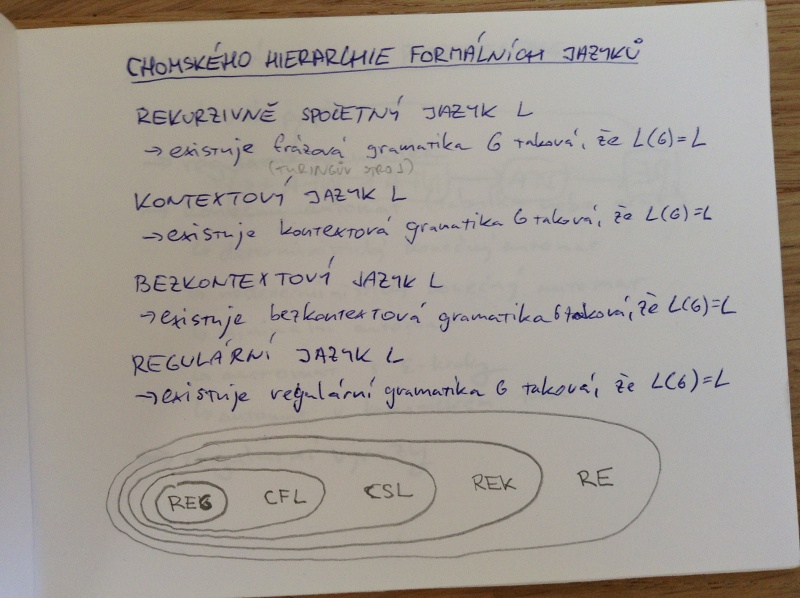 CHOMSKÉHO HIERARCHIE FORMÁLNÍCH JAZYKŮ
REKURZIVNĚ SPOČETNÝ JAZYK L
→ existuje frázová gramatika G taková, že L(G)=L
(TURINGŮV STROJ)
KONTEXTOVÝ JAZYK L
→ existuje kontextová gramatika G taková, že L(G)=L
BEZKONTEXTOVÝ JAZYK L
→ existuje bezkontextová gramatika G taková, že L(G)=L
REGULÁRNÍ JAZYK L
→ existuje regulární gramatika G taková, že L(G)=L
REG CFL CSL REK RE